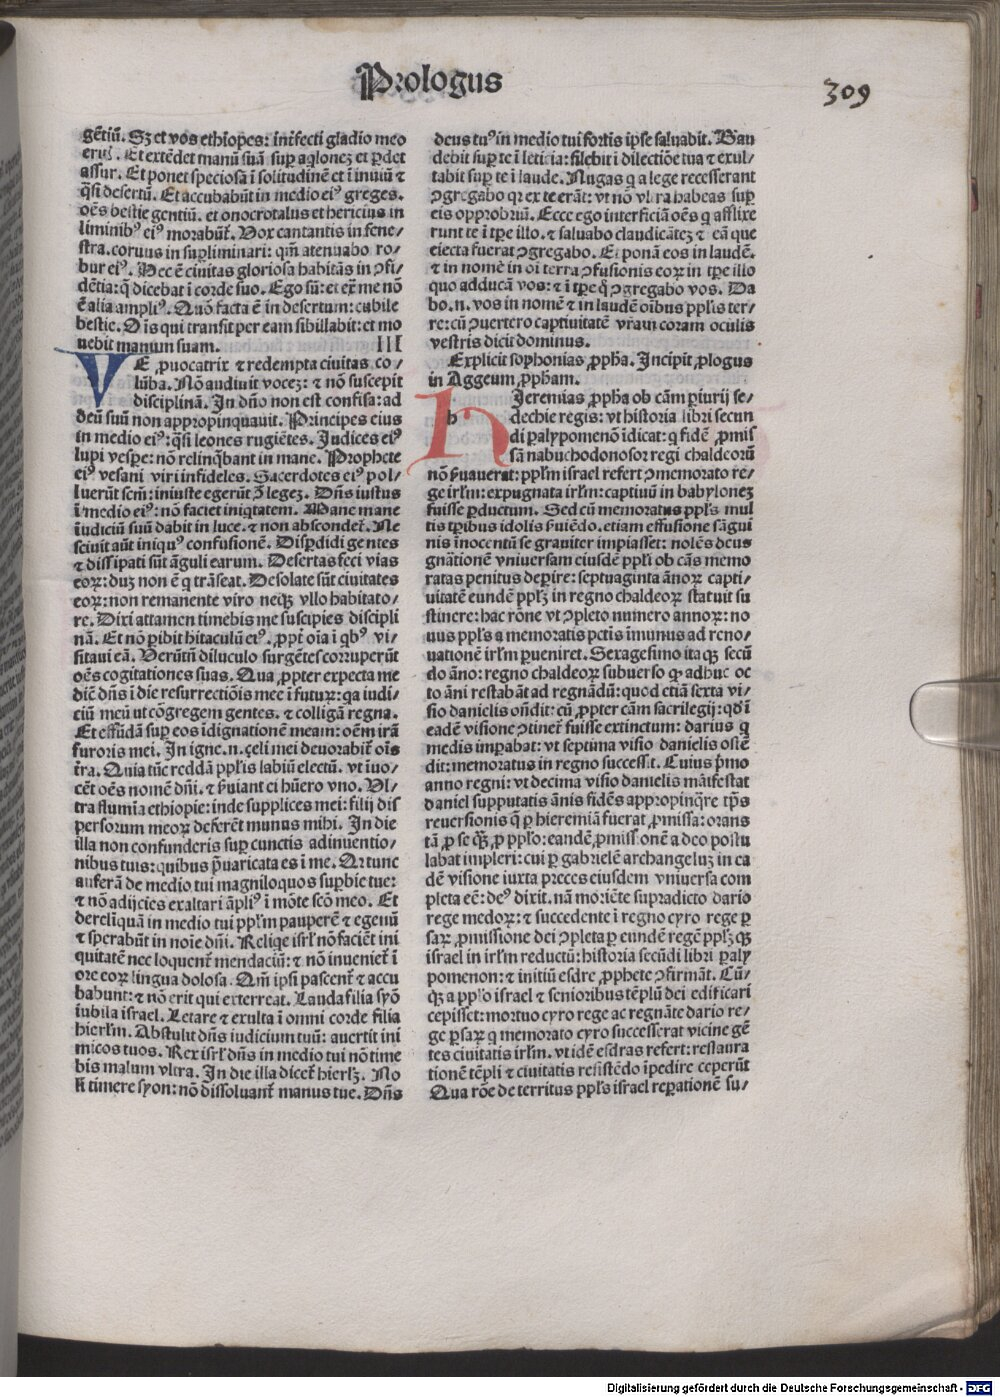 Prologus
309
gētiū. Sz et vos ethiopes: interfecti gladio meo
eritꝭ. Et extēdet manū suā suꝑ aqlonez et ꝑdet
assur. Et ponet speciosā ī solitudinē et ī inuiū ⁊
q̄si desertū. Et accubabūt in medio eiꝰ greges.
oēs bestie gentiū. et onocrotalus et hericius in
liminibꝰ eiꝰ morabūt᷑. Vox cantantis in fene/
stra. coruus in suꝑliminari: qm̄ atenuabo ro/
bur eiꝰ. Hec ē ciuitas gloriosa habitās in ꝯfi/
dētia: q̄ dicebat ī corde suo. Ego sū: et ex̄ me nō
ē alia ampliꝰ. Quō facta ē in desertum: cubile
bestie. Oīs qui transit per eam sibillabit: et mo
uebit manum suam. III
VE ꝓuocatrix ⁊ redempta ciuitas co/
lūba. Nō audiuit vocez: ⁊ nō suscepit
disciplinā. In dn̄o non est confisa: ad
deū suū non appropinquauit. Principes eius
in medio eiꝰ: q̄si leones rugiētes. Judices eiꝰ
lupi vesꝑe: nō relinq̄bant in mane. Prophete
eiꝰ vesani viri infideles. Sacerdotes eiꝰ pol/
luerūt scm̄: iniuste egerūt ꝯ̄ legez. Dn̄s iustus
ī medio eiꝰ: nō faciet iniqtatem. Mane mane
iudiciū suū dabit in luce. ⁊ non abscondet᷑. Ne
sciuit aūt iniquꝰ confusionē. Disꝑdidi gentes
⁊ dissipati sūt āguli earum. Desertas feci vias
eoꝝ: duz non ē q trāseat. Desolate sūt ciuitates
eoꝝ: non remanente viro neqꝫ vllo habitato/
re. Dixi attamen timebis me suscipies discipli
nā. Et nō ꝑibit hitaculū eiꝰ. ꝓpt̄ oīa ī qbꝰ vi/
sitaui eā. Verūtn̄ diluculo surgētes corruperūt
oēs cogitationes suas. Qua ꝓpter expecta me
dic̄ dn̄s ī die resurrectiōis mee ī futuꝝ: qa iudi/
ciū meū ut cōgregem gentes. ⁊ colligā regna.
Et effūdā suꝑ eos īdignationē meam: oēm irā
furoris mei. In igne .n. çeli mei deuorabit᷑ oīs
t̄ra. Quia tūc reddā ppl̄is labiū electū. vt īuo/
cēt oēs nomē dn̄i. ⁊ ẜuiant ei hūero vno. Vl/
tra flumīa ethiopie: inde supplices mei: filij dis
persorum meoꝝ deferēt munus mihi. In die
illa non confunderis suꝑ cunctis adinuentio/
nibus tuis: quibus p̄uaricata es ī me. Qr tunc
auferā de medio tui magniloquos suꝑbie tue:
⁊ nō adijcies exaltari āpliꝰ ī mōte scō meo. Et
derelīquā in medio tui ppl̄m pauperē ⁊ egenū
⁊ sperabūt in noīe dn̄i. Reliqe isrl̄ nō faciēt ini
quitatē nec loquent᷑ mendaciū: ⁊ nō inueniet᷑ ī
ore eoꝝ lingua dolosa. Qm̄ ipsi pascent᷑ ⁊ accu
babunt: ⁊ nō erit qui exterreat. Lauda filia syō
iubila israel. Letare ⁊ exulta ī omni corde filia
hierl̄m. Abstulit dn̄s iudicium tuū: auertit ini
micos tuos. Rex isrl̄ dn̄s in medio tui nō time
bis malum vltra. In die illa dicet᷑ hierl̄ꝫ. No
li timere syon: nō dissoluant᷑ manus tue. Dn̄s
deus tuꝰ in medio tui fortis ipse saluabit. Gau
debit suꝑ te ī leticia: silebit ī dilectiōe tua ⁊ exul/
tabit suꝑ te ī laude. Nugas q a lege recesserant
ꝯgregabo qr ex te erāt: vt nō vltra habeas suꝑ
eis opprobriū. Ecce ego interficiā oēs q afflixe
runt te ī tꝑe illo. ⁊ saluabo claudicātez ⁊ eā que
eiecta fuerat ꝯgregabo. Et ponā eos in laudē.
⁊ in nomē in oī terra ꝯfusionis eoꝝ in tꝑe illo
quo adducā vos: ⁊ ī tꝑe q̄ ꝯgregabo vos. Da
bo .n. vos in nomē ⁊ in laudē oībus ppl̄is ter/
re: cū ꝯuertero captiuitatē vr̄am coram oculis
vestris dicit dominus.
Explicit sophonias ꝓpha. Incipit ꝓlogus
in Aggeum ꝓpham.
h
Jeremias ꝓpha ob cām ꝑiurij se/
dechie regis: vt historia libri secun
di palypomenō īdicat: q̄ fidē ꝓmis
sā nabuchodonosor regi chaldeorū
nō ẜuauerat: ppl̄m israel refert ꝯmemorato re/
ge irl̄m: expugnata irl̄m: captiuū in babylonez
fuisse ꝑductum. Sed cū memoratus ppl̄s mul
tis tꝑibus idolis ẜuiēdo. etiam effusione sāgui
nis īnocentū se grauiter impiasset: nolēs deus
gnātionē vniuersam eiusdē ppl̄i ob cās memo
ratas penitus deꝑire: septuaginta ānoꝝ capti/
uitatē eundē ppl̄ꝫ in regno chaldeoꝝ statuit su
stinere: hac rōne vt ꝯpleto numero annoꝝ: no
uus ppl̄s a memoratis pctis īmunus ad reno/
uationē irl̄m ꝑueniret. Sexagesimo itaqꝫ secū
do āno: regno chaldeoꝝ subuerso qꝛ adhuc oc
to āni restabāt ad regnādū: quod etiā sexta vi/
sio danielis oñdit: cū ꝓpter cām sacrilegij: qd̄ ī
eadē visione ꝯtinet᷑ fuisse extinctum: darius q
medis imꝑabat: vt septima visio danielis ostē
dit: memoratus in regno successit. Cuius p̄mo
anno regni: vt decima visio danielis māifestat
daniel supputatis ānis fidēs appropinqre tꝑs
reuersionis q̄ ꝑ hieremiā fuerat ꝓmissa: orans
tā ꝓ se qꝫ ꝓ ppl̄o: eandē ꝓmissionē a deo postu
labat impleri: cui ꝑ gabrielē archangeluꝫ in ea
dē visione iuxta preces eiusdem vniuersa com
pleta eē: deꝰ dixit. nā moriēte supradicto dario
rege medoꝝ: ⁊ succedente ī regno cyro rege ꝑ
saꝝ ꝓmissione dei ꝯpleta ꝑ eundē regē ppl̄ꝫqꝫ
israel in irl̄m reductū: historia secūdi libri ꝑaly
pomenon: ⁊ initiū esdre ꝓphete ꝯfirmāt. Cū/
qꝫ a ppl̄o israel ⁊ senioribus tēplū dei edificari
cepisset: mortuo cyro rege ac regnāte dario re/
ge ꝑsaꝝ q memorato cyro successerat vicine gē
tes ciuitatis irl̄m. vt idē esdras refert: restaura
tionē tēpli ⁊ ciuitatis resistēdo īpedire ceperūt
Qua rōe de territus ppl̄s israel reꝑationē su/
Digitalisierung gefördert durch die Deutsche Forschungsgemeinschaft - DFG